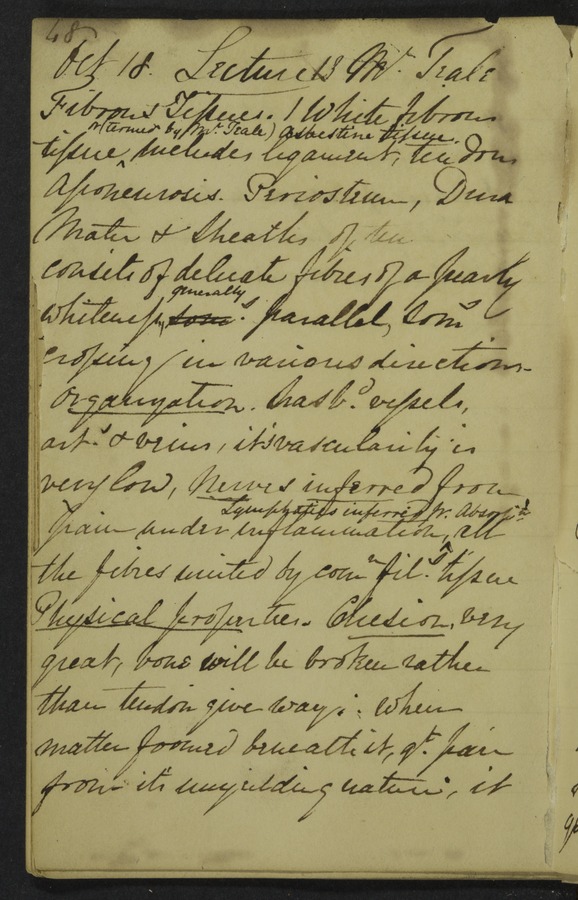 48
Oct 18. Lecture 13 Mr Teale
Fibrous Tissues. 1 White fibrous
or (termed by Mr Teale) asbestine tissue.
tissue, includes ligament, tendons
Aponeurosis. Periosteum, Dura
Mater & Sheaths of ten
consists of delicate fibres of a pearly
generally
whiteness, soms. parallel, soms
crossing in various directions.
Organization. has bd vessels,
arts & veins, it's vascularity is
very low, Nerves inferred from
Lymphatics inferred fr. Absorptn
pain under inflammation, all
the fibres united by comn fils tissue
Physical properties. Cohesion, very
great, bone will be broken rather
than tendon give way; when
matter formed beneath it, gt pain
from it's unyielding nature, it